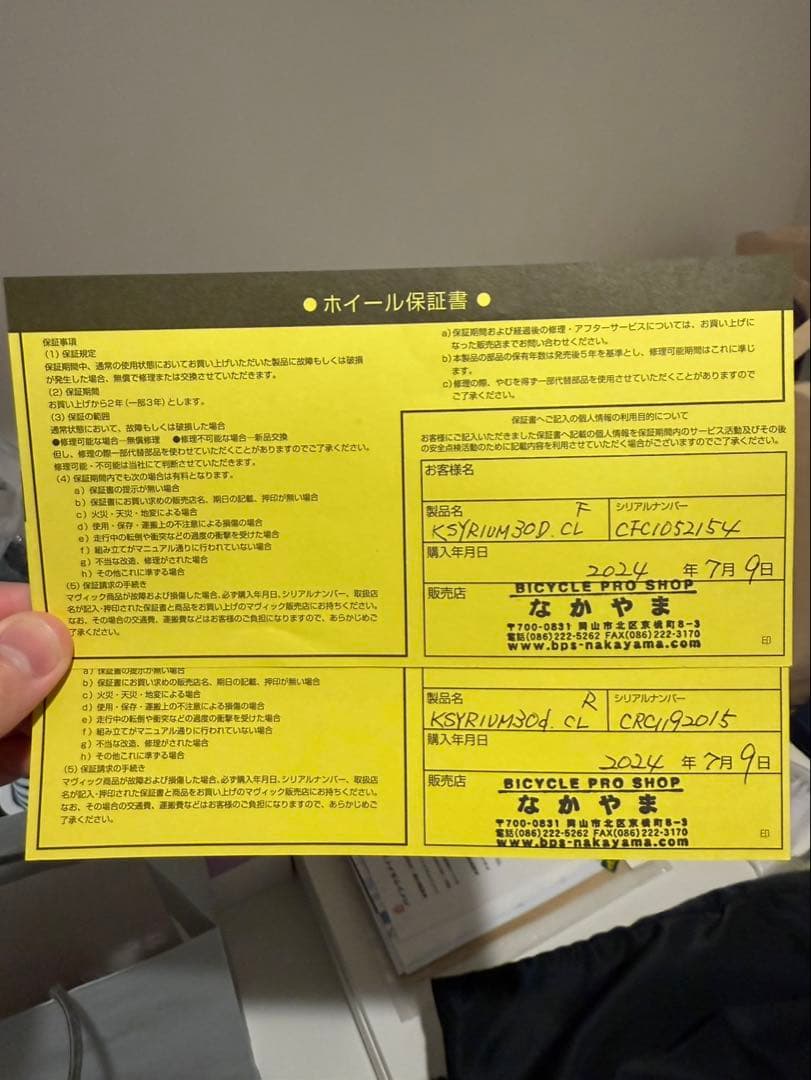 ●ホイール保証書●
保証事項
(1)保証規定
保証期間中、通常の使用状態においてお買い上げいただいた製品に故障もしくは破損
が発生した場合、無償で修理または交換させていただきます。
(2)保証期間
お買い上げから2年(一部3年)とします。
(3)保証の範囲
通常状態において、故障もしくは破損した場合
●修理可能な場合―無償修理 ●修理不可能な場合―新品交換
但し、修理の際一部代替部品を使わせていただくことがありますのでご了承ください。
修理可能・不可能は当社にて判断させていただきます。
(4)保証期間内でも次の場合は有料となります。
a)保証書の提示が無い場合
b)保証書にお買い求めの販売店名、期日の記載、押印が無い場合
c)火災・天災・地変による場合
d)使用・保存・運搬上の不注意による損傷の場合
e)走行中の転倒や衝突などの過度の衝撃を受けた場合
f)組み立てがマニュアル通りに行われていない場合
g)不当な改造、修理がされた場合
h)その他これに準ずる場合
(5)保証請求の手続き
マヴィック商品が故障および損傷した場合、必ず購入年月日、シリアルナンバー、取扱店
名が記入・押印された保証書と商品をお買い上げのマヴィック販売店にお持ちください。
なお、その場合の交通費、運搬費などはお客様のご負担になりますので、あらかじめご
了承ください。
a)保証期間および経過後の修理・アフターサービスについては、お買い上げに
なった販売店までお問い合わせください。
b)本製品の部品の保有年数は発売後5年を基準とし、修理可能期間はこれに準じ
ます。
c)修理の際、やむを得ず一部代替部品を使用させていただくことがありますので
ご了承ください。
保証書へご記入の個人情報の利用目的について
お客様にご記入いただきました保証書へ記載の個人情報を保証期間内のサービス活動及びその後
の安全点検活動のために記載内容を利用させていただく場合がございますのでご了承ください。
お客様名
製品名 F シリアルナンバー
KSYRIUM30D.CL CFC1052154
購入年月日
2024 年 7月 9日
販売店
BICYCLE PRO SHOP
なかやま
〒700-0831 岡山市北区京橋町8-3
電話(086)222-5262 FAX(086)222-3170
www.bps-nakayama.com
印
a)保証書の提示が無い場合
b)保証書にお買い求めの販売店名、期日の記載、押印が無い場合
c)火災・天災・地変による場合
d)使用・保存・運搬上の不注意による損傷の場合
e)走行中の転倒や衝突などの過度の衝撃を受けた場合
f)組み立てがマニュアル通りに行われていない場合
g)不当な改造、修理がされた場合
h)その他これに準ずる場合
(5)保証請求の手続き
マヴィック商品が故障および損傷した場合、必ず購入年月日、シリアルナンバー、取扱店
名が記入・押印された保証書と商品をお買い上げのマヴィック販売店にお持ちください。
なお、その場合の交通費、運搬費などはお客様のご負担になりますので、あらかじめご
了承ください。
製品名 R シリアルナンバー
KSYRIUM30d.CL CRC1192015
購入年月日
2024 年 7月 9日
販売店
BICYCLE PRO SHOP
なかやま
〒700-0831 岡山市北区京橋町8-3
電話(086)222-5262 FAX(086)222-3170
www.bps-nakayama.com
印